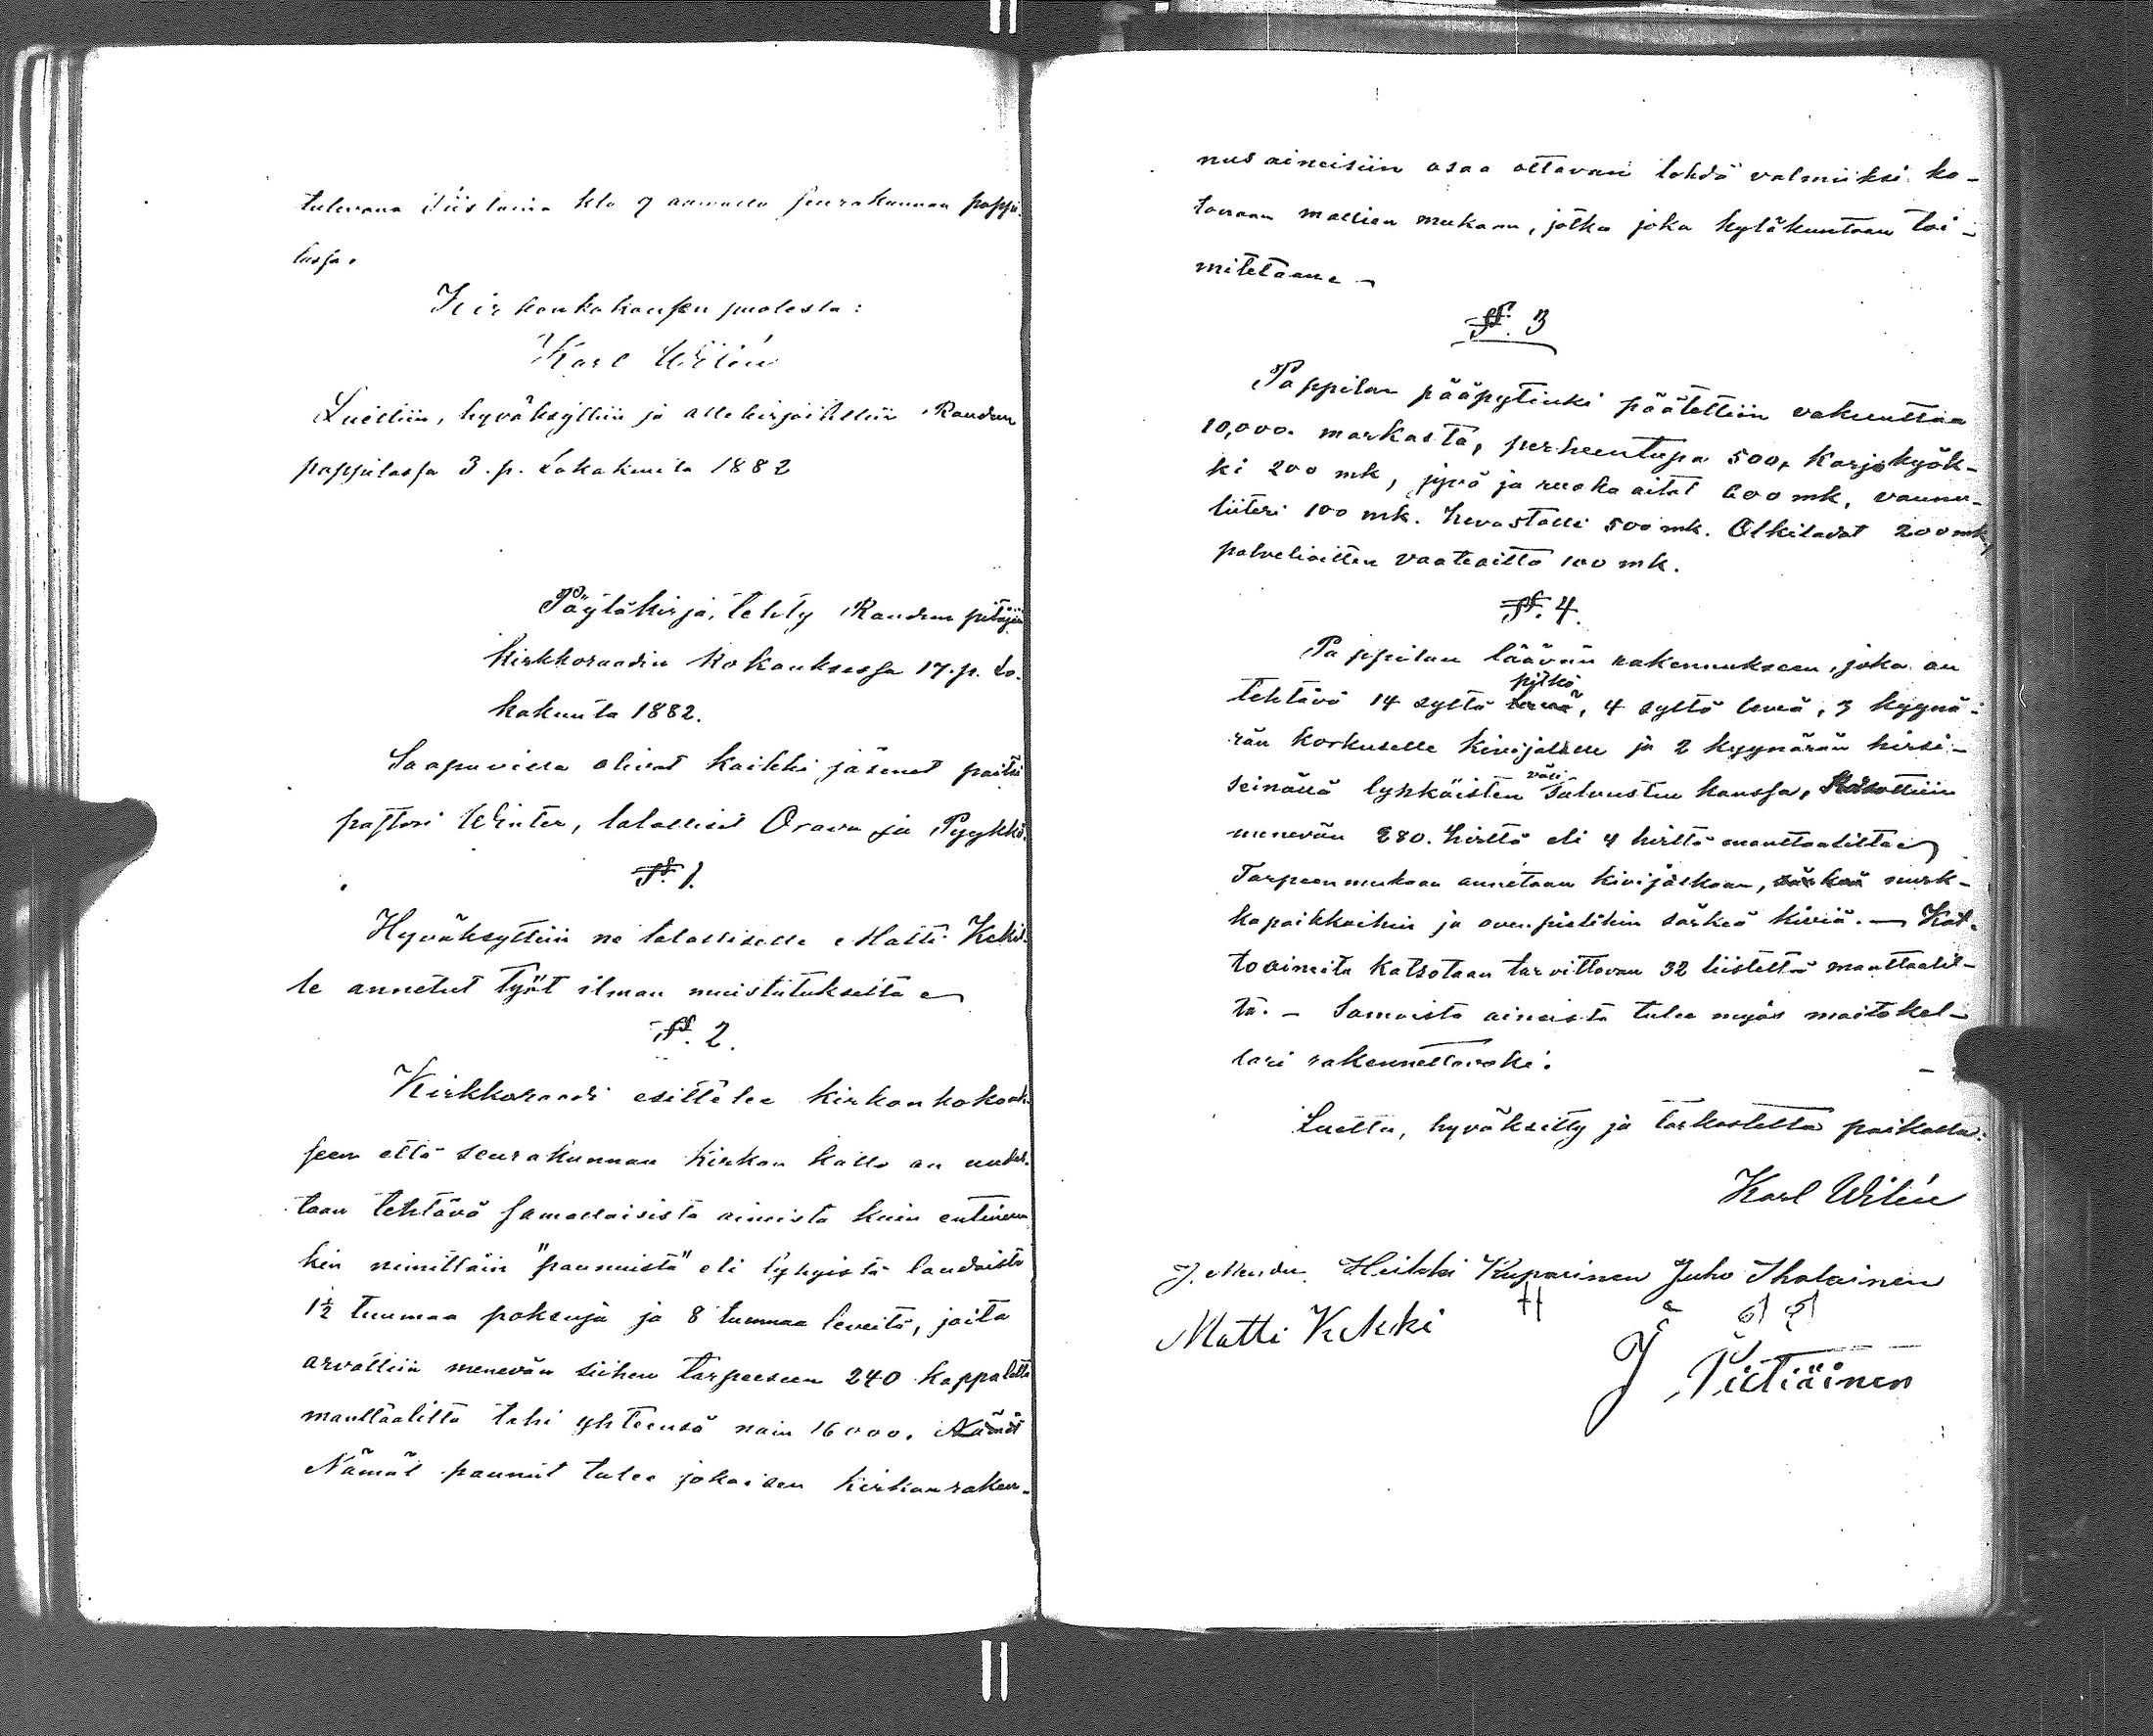 tulevana tiistaina klo 9 aamulla seurakunnan pappi-
lassa.
Kirkonkokouksen puolesta:
Karl Wilén
Luettiin, hyväksyttiin ja allekirjoitettiin Raudun
pappilassa 3. p. Lokakuuta 1882
Pöytäkirja, tehty Raudun pitäjän
kirkkoraadin kokouksessa 17. p. Lo-
kakuuta 1882.
Saapuvilla olivat kaikki jäsenet paitsi
pastori Winter, talolliset Orava ja Pyykkö.
§. 1.
Hyväksyttiin ne talolliselle Matti Kekil-
le annetut työt ilman muistutuksetta
§. 2.
Kirkkoraadi esittelee kirkonkokouk-
seen että seurakunnan kirkon katto on uudes-
taan tehtävä samallaisista aineista kuin entinen
kin nimittäin "paunuista" eli lyhyistä laudoista
1½ tuumaa paksuja ja 8 tuumaa leveitä, joita
arvattiin menevän siihen tarpeeseen 240 kappaletta
manttaalilta tahi yhteensä noin 16000. Nämät
Nämät paunut tulee jokaisen kirkonraken-
nus aineisiin osaa ottavan tehdä valmiiksi ko-
tonaan mallien mukaan, jotka joka kyläkuntaan toi-
mitetaan. -
§. 3
Pappilan pääpytinki päätettiin vakuuttaa
10,000. markasta, perheentupa 500, Karjakyök-
ki 200 mk, jyvä ja ruoka aitat 600 mk, vaunu-
liiteri 100 mk. hevostalli 500 mk. Olkiladot 200 mk,
palvelioitten vaateaitta 100 mk.
§. 4.
Pappilan läävän rakennukseen, joka on
tehtävä 14 syltä leveä pitkä, 4 syltä leveä, 3 kyynä-
rän korkuselle kivijalalle ja 2 kyynärän hirsi-
seinällä lyhkäisten väli salvusten kanssa, katsottiin
menevän 280. hirttä eli 4 hirttä manttaalilta
Tarpeen mukaan annetaan kivijalkaan, särkeä nurk-
kapaikkoihin ja ovenpieliihin särkeä kiviä. — Kat-
toaineita katsotaan tarvittavan 32 liistettä manttaalil-
ta. - Samoista aineista tulee myös maitokel-
lari rakennettavaksi.
Luettu, hyväksitty ja tarkastettu paikalla:
Karl Wilén
Heikki Kuparinen Juho Iholainen
Matti Kekki
J Pietiäinen